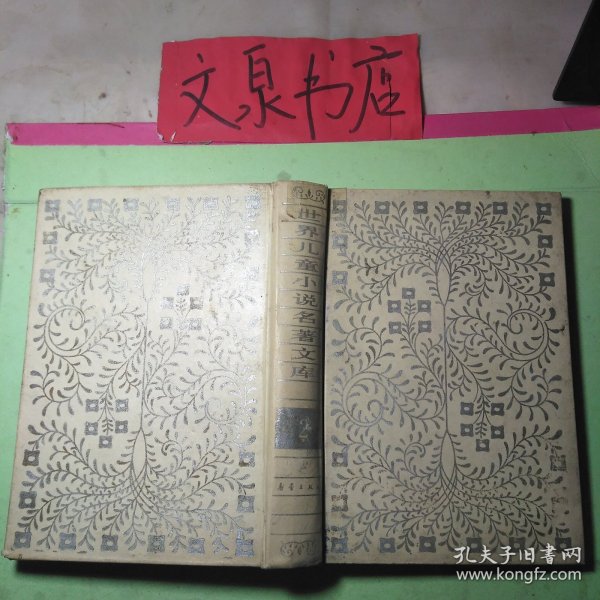 文泉书店
世界儿童小说名著文库
2
新蕾出版社
孔夫子旧书网
www.kongfz.com